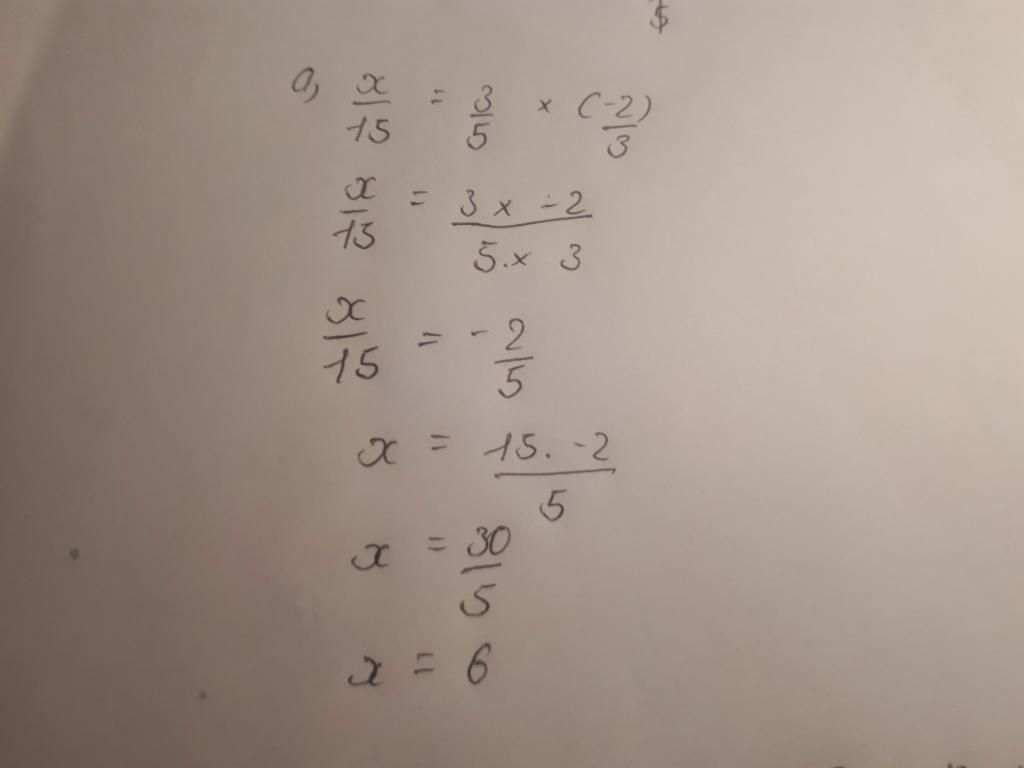 $
a, x/15 = 3/5 × (-2)/3
x/15 = 3 x -2 / 5.x 3
x/15 = - 2/5
x = 15. -2 / 5
x = 30/5
x = 6